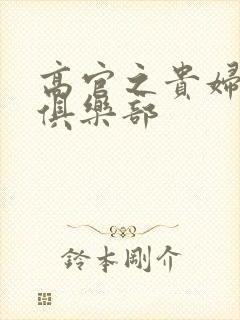 高官之貴婦
俱樂部
鈴本剛介